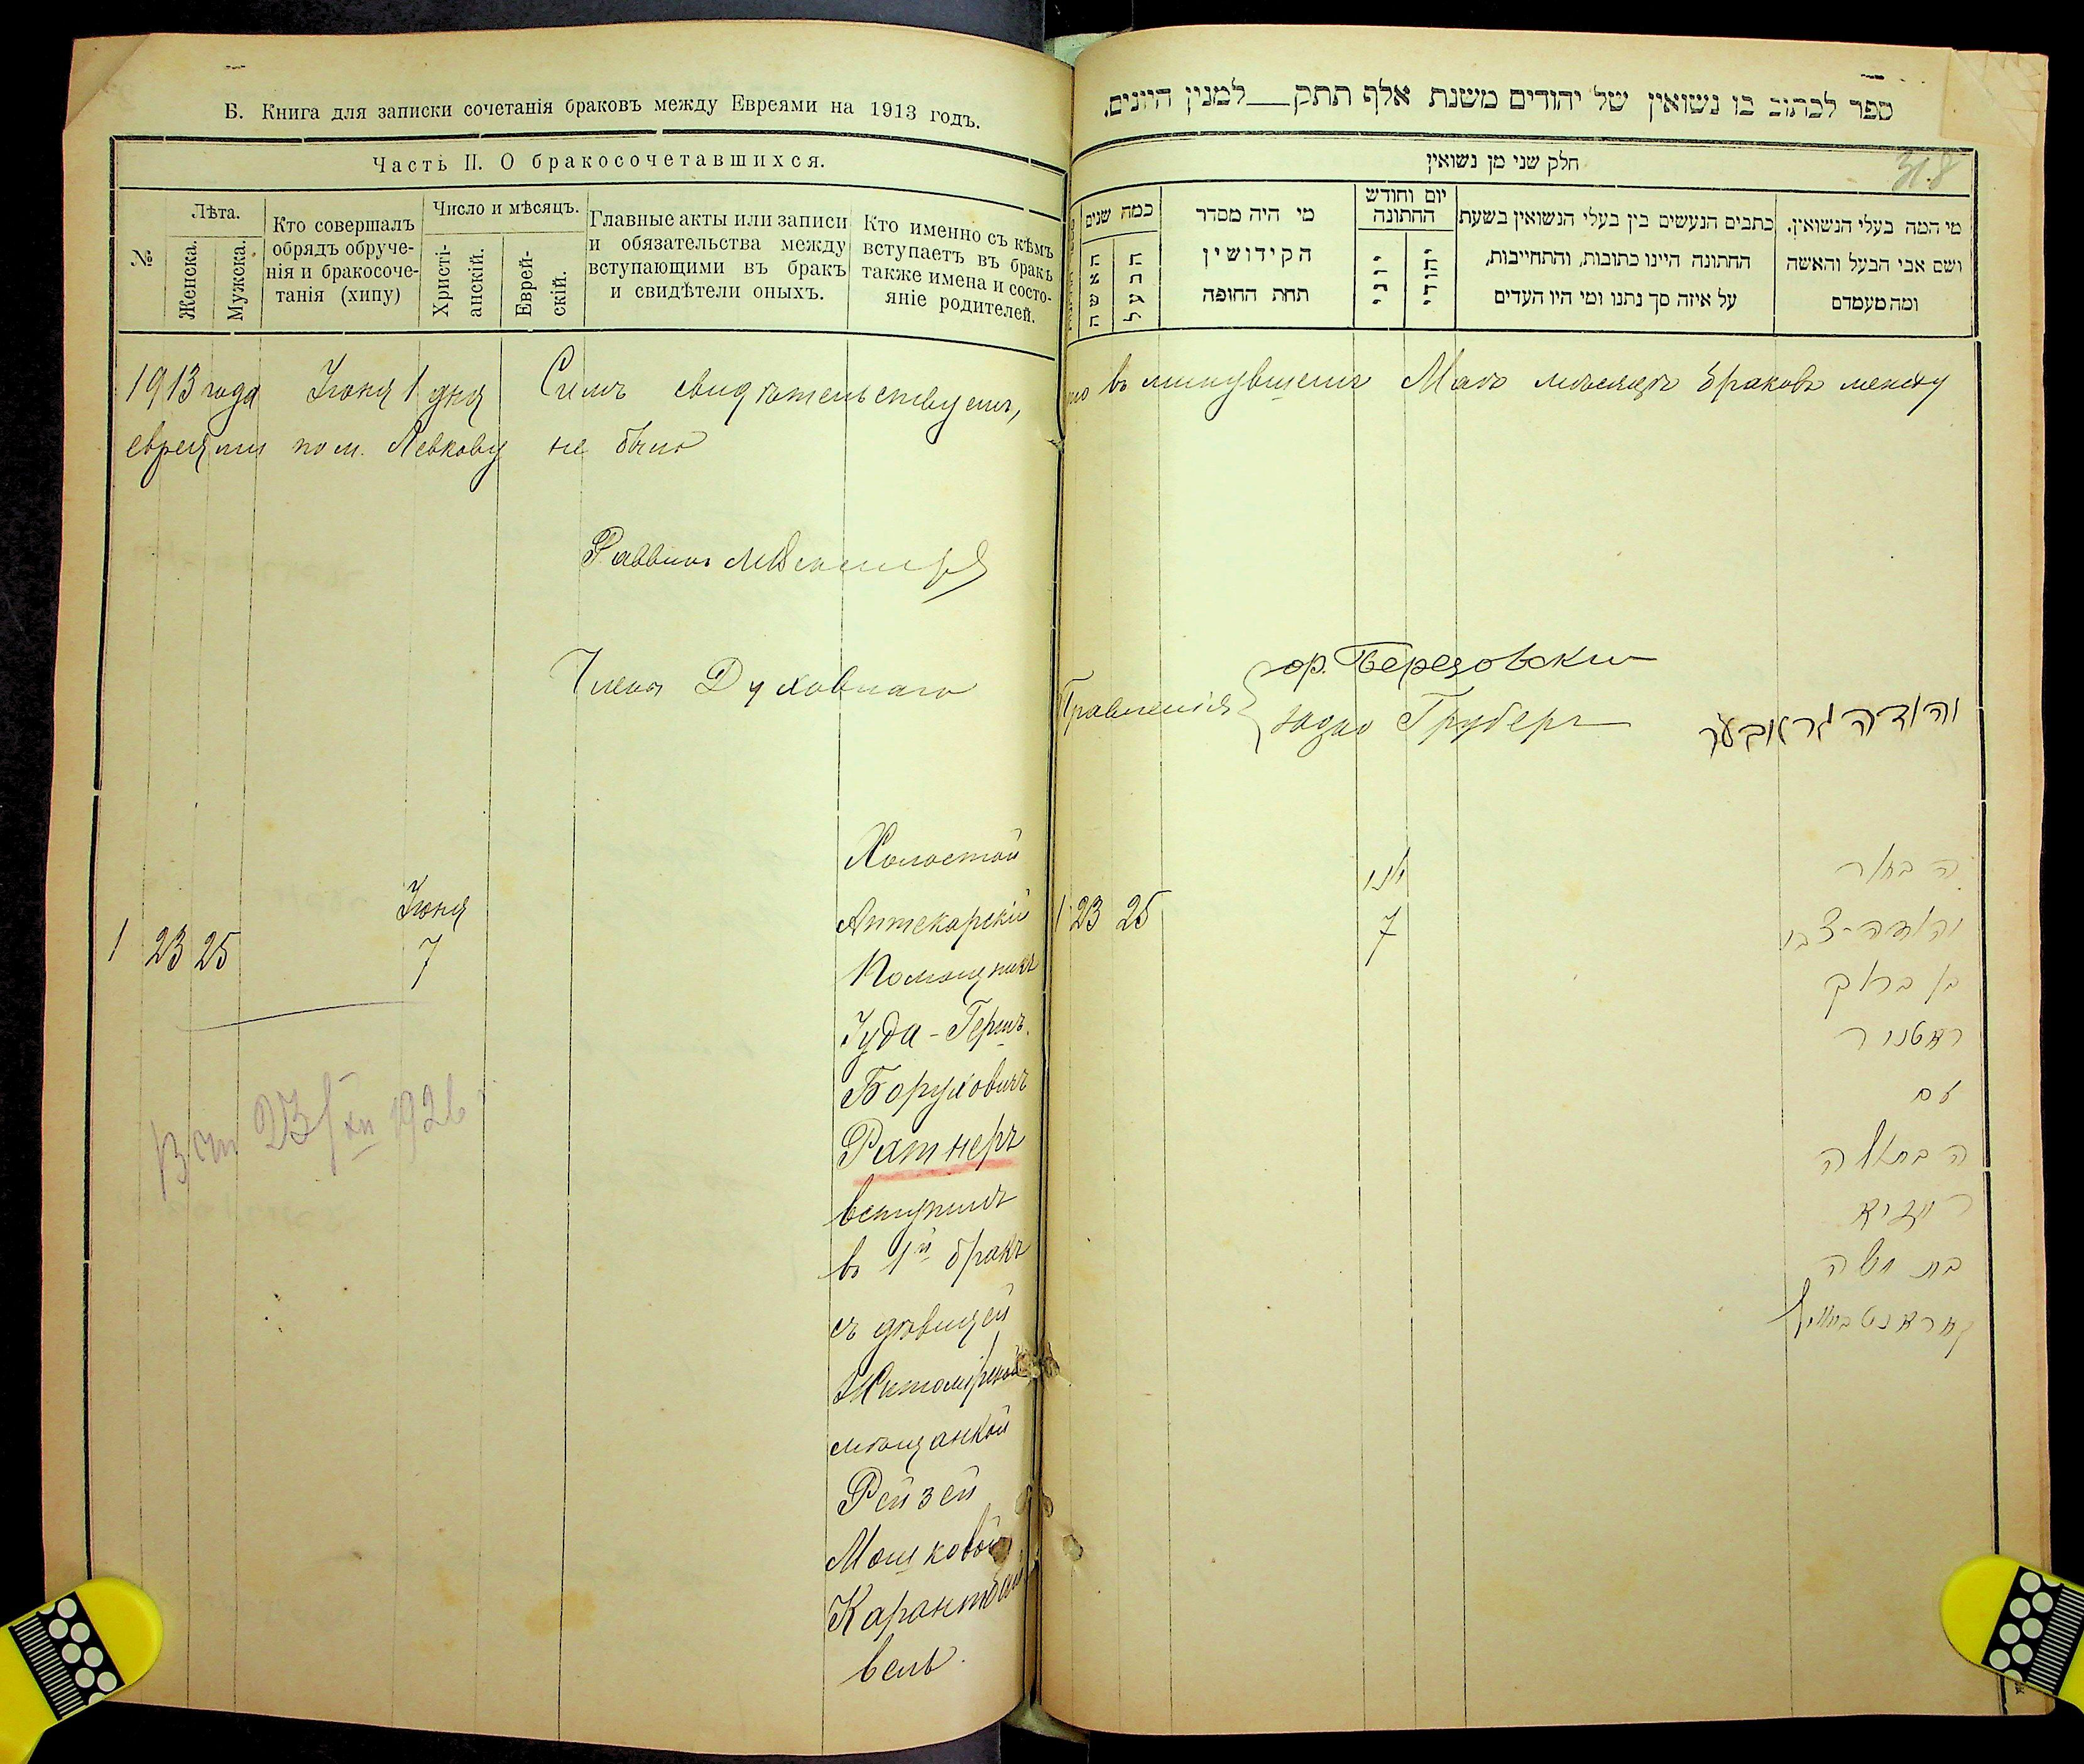 Б. Книга для записки сочетанія браковъ между Евреями на 1913 годъ.
Часть II. О бракосочетавшихся.
№
Лѣта.
Женска.
Мужска.
Кто совершалъ
обрядъ обруче-
нія и бракосоче-
танія (хипу)
Число и мѣсяцъ.
Христі-
анскій.
Еврей-
скій.
Главные акты или записи
и обязательства между
вступающими въ бракъ
и свидѣтели оныхъ.
Кто именно съ кѣмъ
вступаетъ въ бракъ
также имена и состо-
яніе родителей.
1913 года Іюня 1 дня Симъ свидѣтельствуемъ,
евреями по м. Левкову не было
Раввинъ
Членъ Духовнаго
Холостой
Іюня
Аптекарскій
1 23 25 7
Помощникъ
Іуда-Гершъ
Боруховичъ
Ратнеръ
вступилъ
въ 1й бракъ
съ дѣвицей
Житомірской
мѣщанкой
Рейзей
Мошковой
Карантбай
вель.
23/XII 1926
ספר לכתוב בו נשואין של יהודים משנת אלף תתק__למנין היונים.
318
חלק שני מן נשואין
מי המה בעלי הנשואין.
ושם אבי הבעל והאשה
ומה מעמדם
כתבים הנעשים בין בעלי הנשואין בשעת
החתונה היינו כתובות, והתחייבות,
על איזה סך נתנו ומי היו העדים
יום וחודש
החתונה
יהודי
יוני
מי היה מסדר
הקידושין
תחת החופה
כמה שנים
הבעל
האשה
въ минувшемъ Маѣ мѣсяцѣ браковъ между
Правленія
ор. Березовскій
Груберъ
יהודה גראבער
הבחור
יוני
1 23 25 7
יהודה-צבי
בן ברוך
ראטניר
עם
הבתולה
רייזיא
בת משה